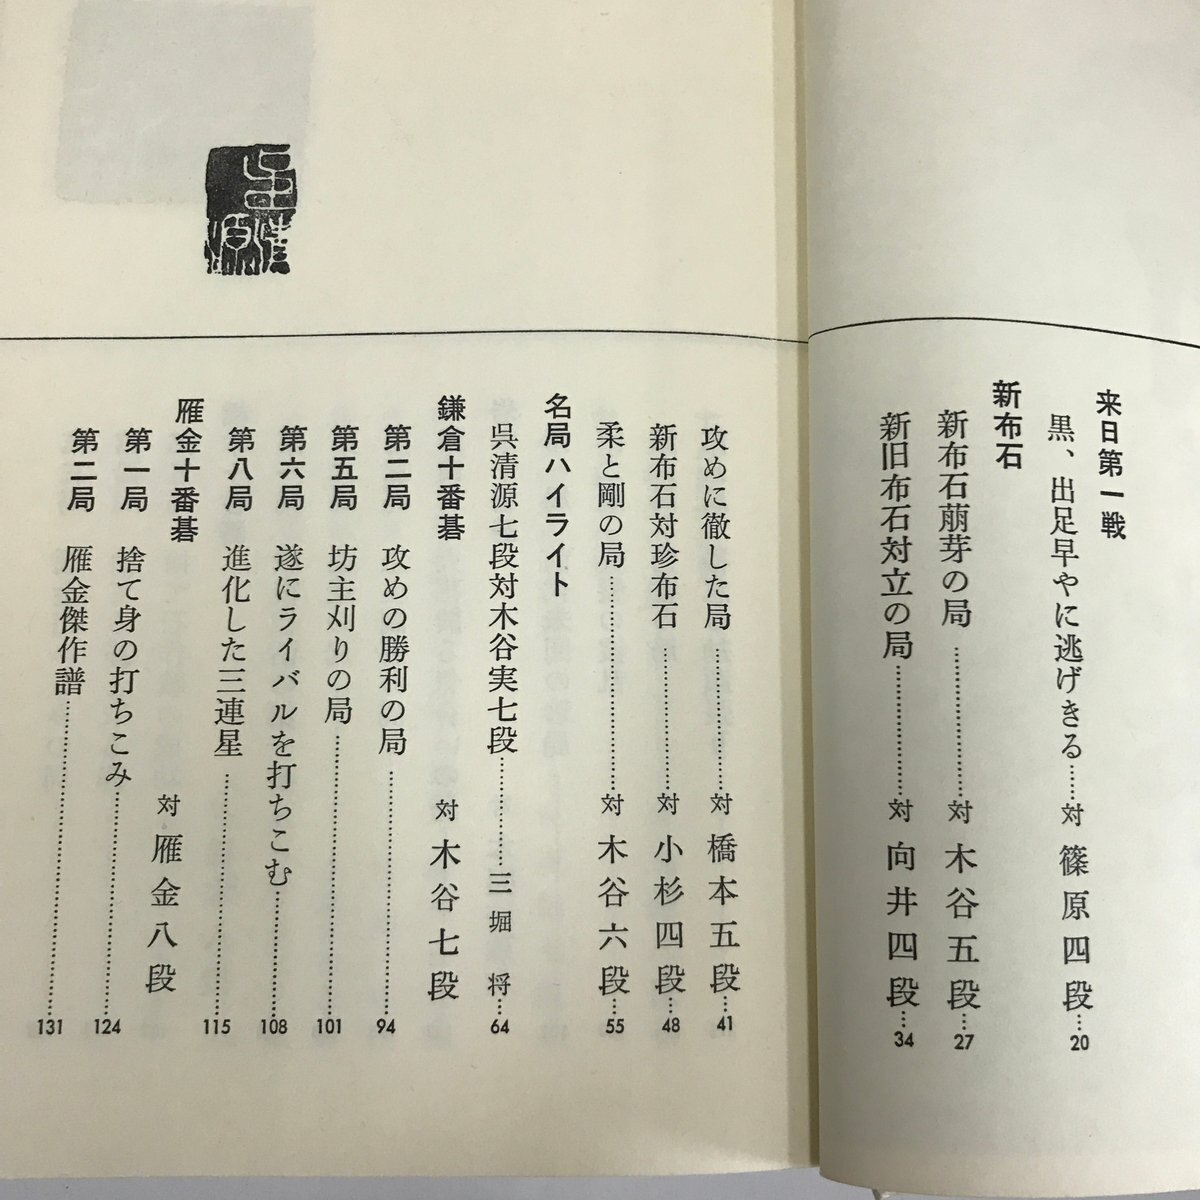 来日第一戦
黒、出足早やに逃げきる……対 篠原四段…20
新布石
新布石萠芽の局……………対 木谷五段…27
新旧布石対立の局……………対 向井四段…34
攻めに徹した局……………対 橋本五段…41
新布石対珍布石……………対 小杉四段…48
柔と剛の局……………対 木谷六段…55
名局ハイライト
呉清源七段対木谷実七段……………三堀 将…64
鎌倉十番碁 対 木谷七段
第二局 攻めの勝利の局……………94
第五局 坊主刈りの局……………101
第六局 遂にライバルを打ちこむ……………108
第八局 進化した三連星……………115
雁金十番碁 対 雁金八段
第一局 捨て身の打ちこみ……………124
第二局 雁金傑作譜……………131